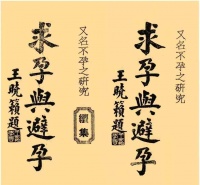 又名不孕之研究
求孕與避孕
王曉籟題
續集
又名不孕之研究
求孕與避孕
王曉籟題